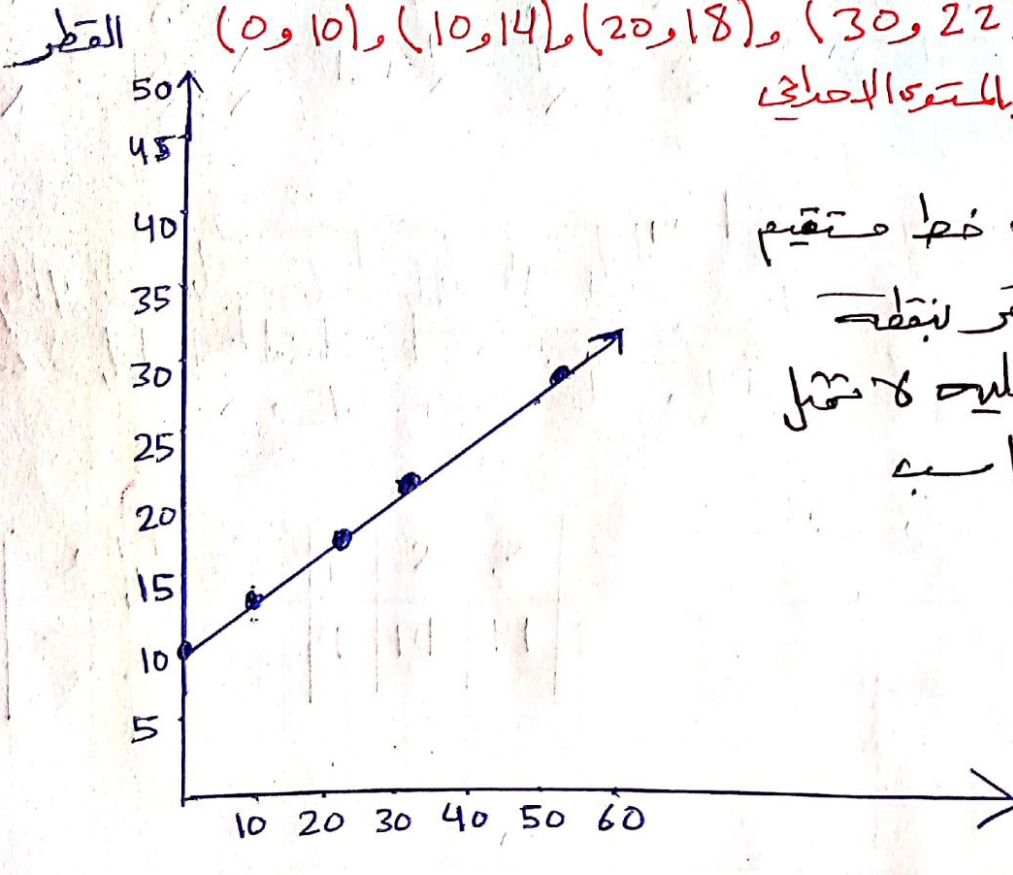 القطر (0و10)، (10و14)، (20و18)، (30و22
بالمستوى الاحداثي
خط مستقيم
لنقطة
لا تمثل
50
45
40
35
30
25
20
15
10
5
10 20 30 40 50 60